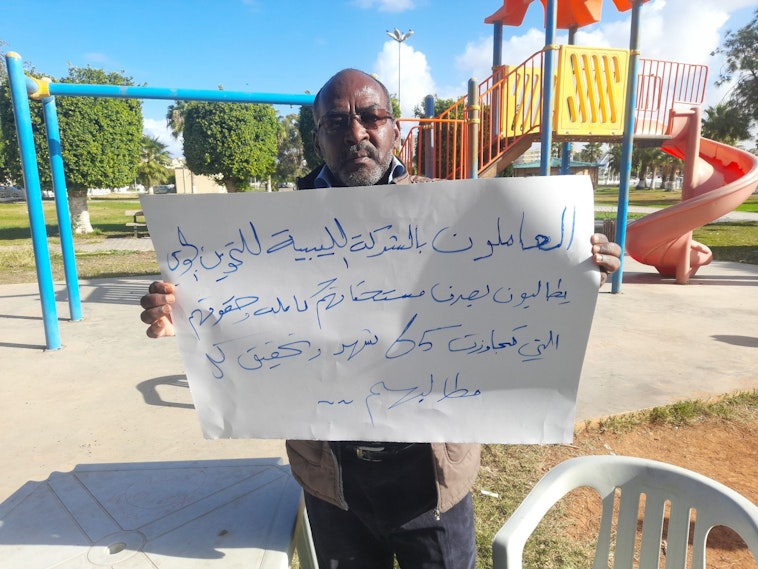 العاملون بالشركة الليبية للتموين الجوي
يطالبون بصرف مستحقاتهم كاملة وحقوقهم
التي تجاوزت 65 شهر وتحقيق كل
مطالبهم ~~